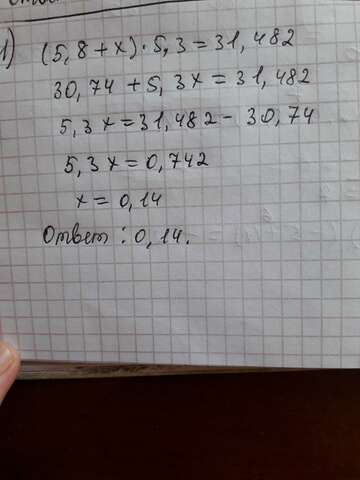 1) (5,8+x)·5,3=31,482
30,74+5,3x=31,482
5,3x=31,482-30,74
5,3x=0,742
x=0,14
Ответ: 0,14.